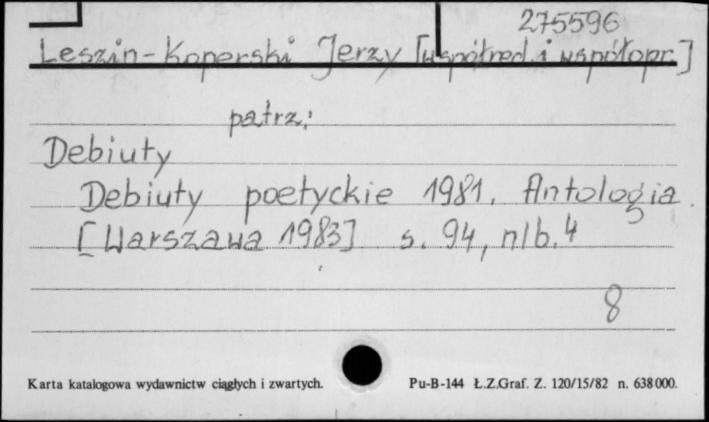 275596
Leszin-Koperski Jerzy [współred. i współopr.]
patrz:
Debiuty
Debiuty poetyckie 1981. Antologia.
[Warszawa 1983] s. 94, nlb. 4
8
Karta katalogowa wydawnictw ciągłych i zwartych. Pu-B-144 Ł.Z.Graf. Z. 120/15/82 n. 638 000.